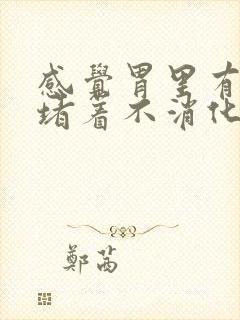 感覺胃里有
堵着不消化
鄭茜